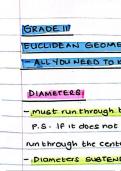 GRADE 11
EUCLIDEAN GEOME
- ALL YOU NEED TO K
DIAMETERS
- must run through t
P.S. IF it does not
run through the cent
- Diameters SUBTEN